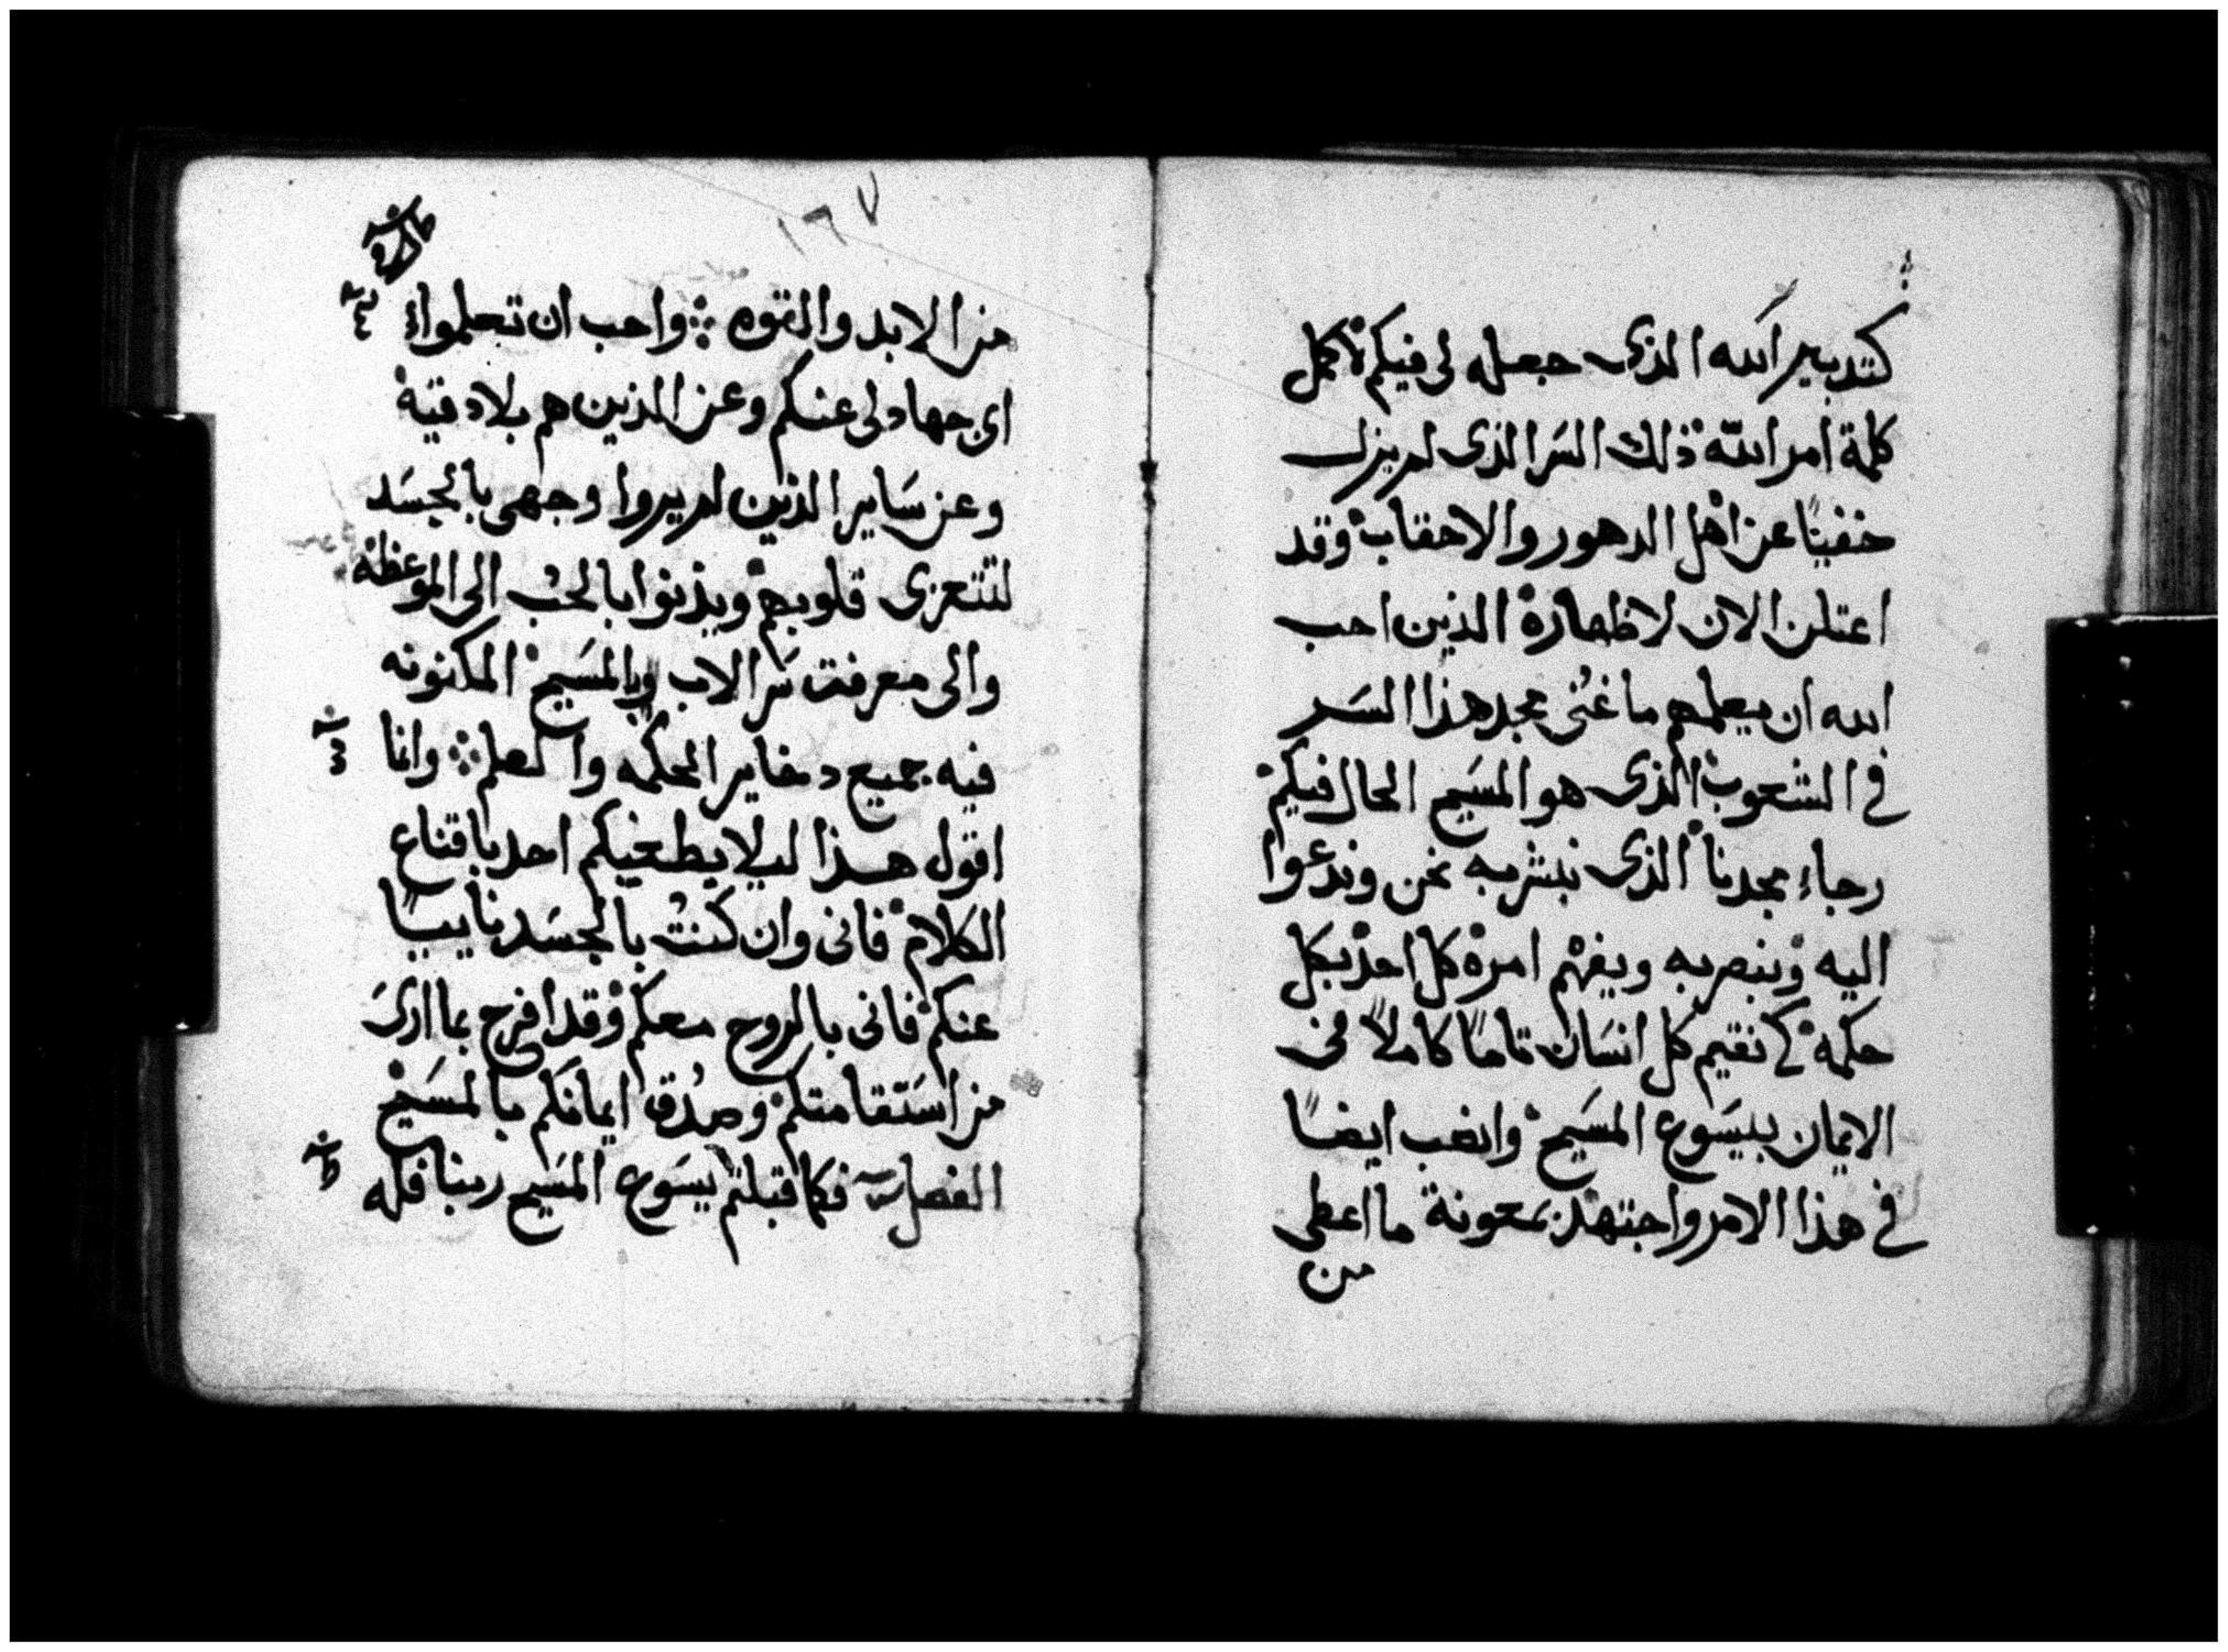 كتدبير الله الذى جعله لى فيكم لاكمل
كلمة امر الله ذلك السر الذى لم يزل
خفيًا عن اهل الدهور والاحقاب وقد
اعتلن الان لاطهاره الذين احب
الله ان يعلمهم ما غنى مجد هذا السر
فى الشعوب الذى هو المسيح الحال فيكم
رجاء مجدنا الذى نبشر به نحن وندعوا
اليه ونبصر به ويفهم امره كل احد بكل
حكمه كى نقيم كل انسان تامًا كاملاً فى
الايمان بيسوع المسيح وانصب ايضًا
فى هذا الامر واجتهد بمعونة ما اعطى
من
١٦٧
من الايد والقوه ܀ واحب ان تعلموا
اى جهاد لى عنكم وعن الذين هم بلادقيه
وعن ساير الذين لم يروا وجهى بالجسد
لتتعزى قلوبهم ويدنوا بالحب الى الموعظه
والى معرفت سر الاب وبالمسيح المكنونه
فيه جميع دخاير الحكمه والعلم ܀ وانما
اقول هذا ليلا يطغيكم احد باقناع
الكلام فانى وان كنت بالجسد نايبًا
عنكم فانى بالروح معكم وقد افرح بما ارى
من استقامتكم وصدق ايمانكم بالمسيح
الفصل فكما قبلتم يسوع المسيح ربنا فله